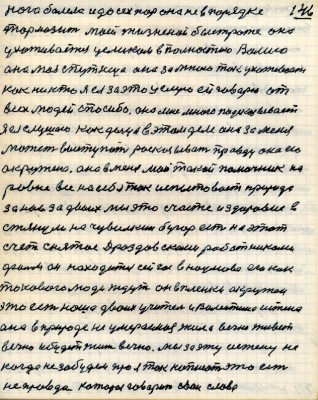 146
нога болела и до сех пор она не в порядке
тормозит мой жизненой быстроте она
ухаживается целиком и полностью Валию
она моя спутница она за мною так ухаживает
как некто я ей за это целую ей говорю от
всех людей спосибо, оно мне много подсказывает
за слушою как деица в этом деле она за меня
может выступити росказыват правду она его
окружено, она в мене мой такой помочник на
ровне все на себя так испытовает природа
за нов за двоих мы это счастие и здоровие в
стянули на чувилкин бугор ест на этот
счет снятое Дроздовским работниками
филм он находится сейчас в наумово его как
токового люди ждут он в пленки окружон
это ест наша двоих учителя и Валентино истина
она в природе не умераемая жила вечно живет
вечно и будит жит вечно. мы за эту истену не
когда не забудем про я так напишот это ест
не правда которая говорит свои слова